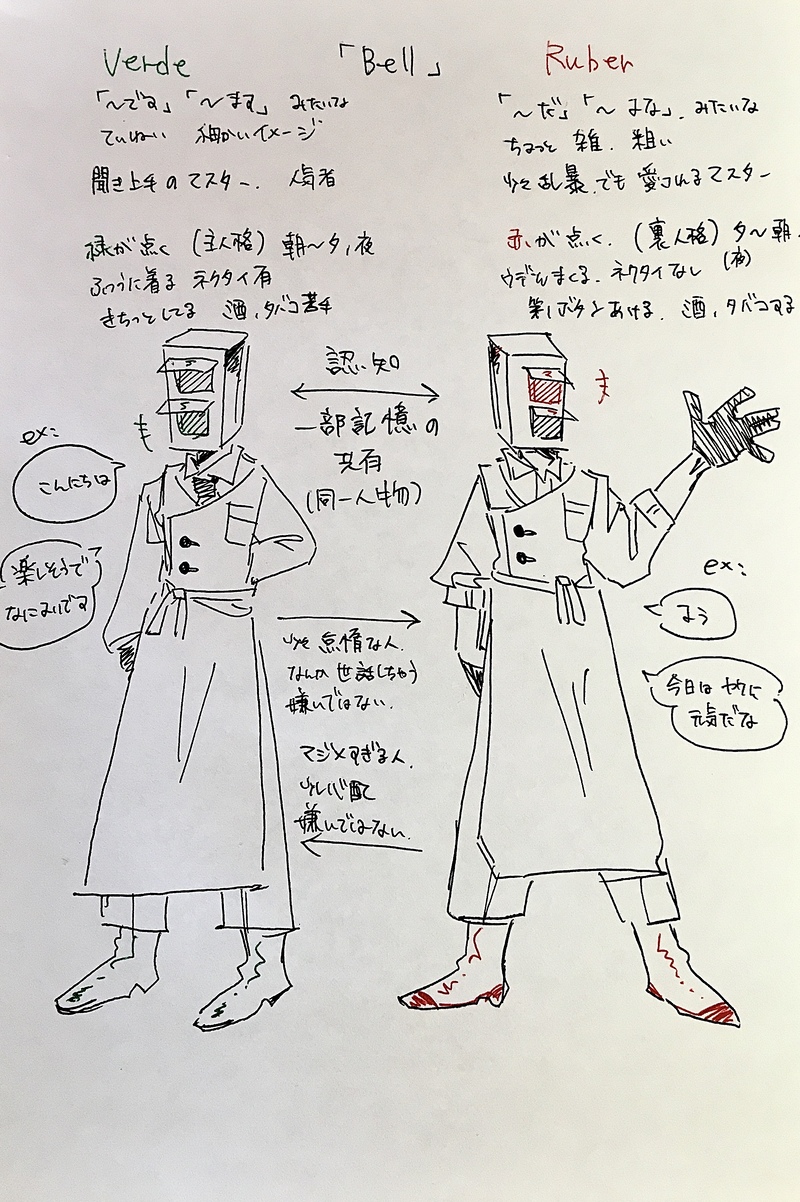 Verde
「Bell」
Ruber
「〜です」「〜ます」みたいな
ていねい 細かいイメージ
聞き上手のマスター. 人気者
緑が点く (主人格) 朝〜夕,夜
ふつうに着る ネクタイ有
きちっとしてる 酒,タバコ苦手
「〜だ」「〜よな」.みたいな
ちょっと 雑.粗い
少々乱暴.でも愛されるマスター
赤が点く.(裏人格) 夕〜朝.
(夜)
ウデんまくる.ネクタイなし
第1ボタンあける.酒,タバコする
認知
一部記憶の
共有
(同一人物)
ex:
こんにちは
楽しそうで
なによりです
少々怠惰な人.
なんか世話しちゃう
嫌いではない.
マジメすぎる人.
少し心配
嫌いではない.
ex:
よう
今日はやけに
元気だな